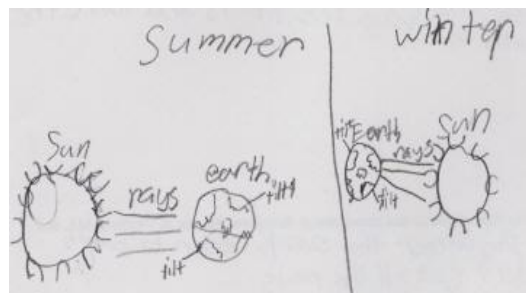 Summer
Sun
rays
earth
tilt
tilt
winter
tilt Earth
rays
Sun
tilt